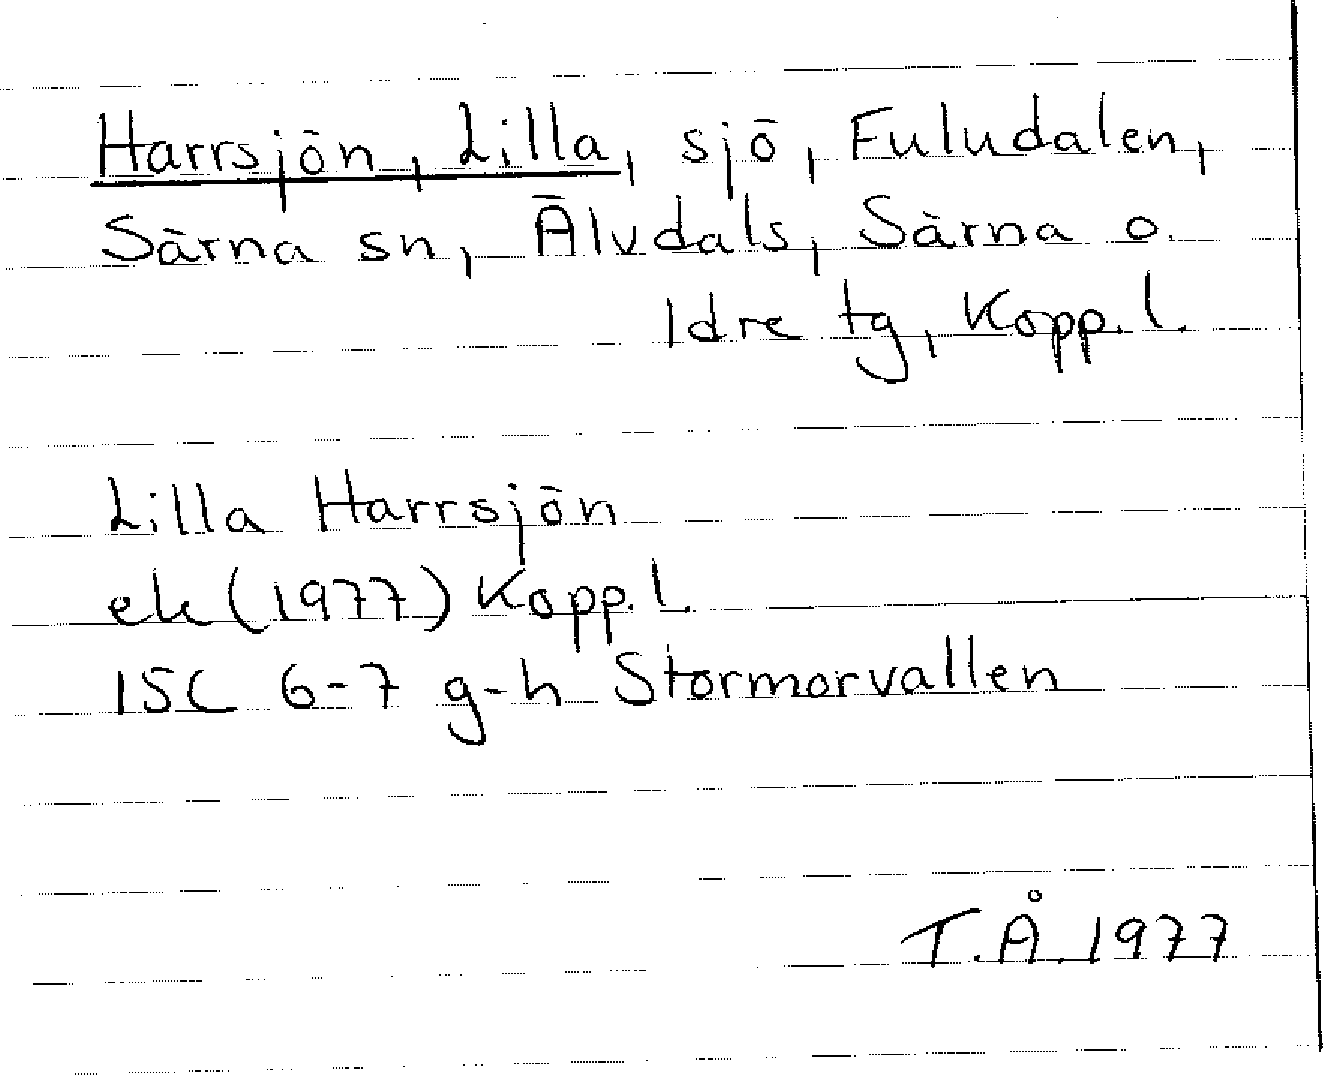 Harrsjön, Lilla, sjö, Fuludalen,
Särna sn, Älvdals, Särna o.
Idre tg, Kopp. l.
Lilla Harrsjön
ek (1977) Kopp. l.
15C 6-7 g-h Stormorvallen
T.Å. 1977